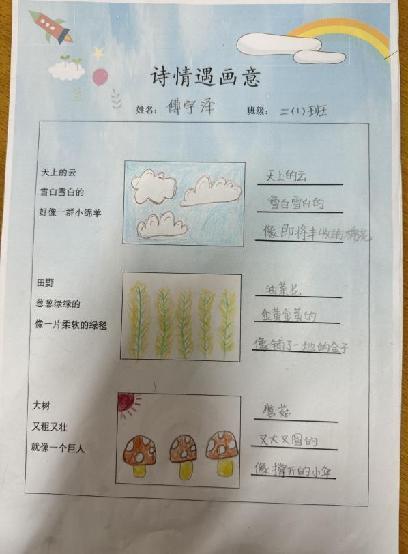 诗情遇画意
姓名: 傅宇泽 班级: 二(1)班
天上的云
雪白雪白的
好像一群小绵羊
天上的云
雪白雪白的
像即将丰收的棉花
田野
葱葱绿绿的
像一片柔软的绿毯
油菜花
金黄金黄的
像铺了一地的金子
大树
又粗又壮
就像一个巨人
蘑菇
又大又圆的
像撑开的小伞